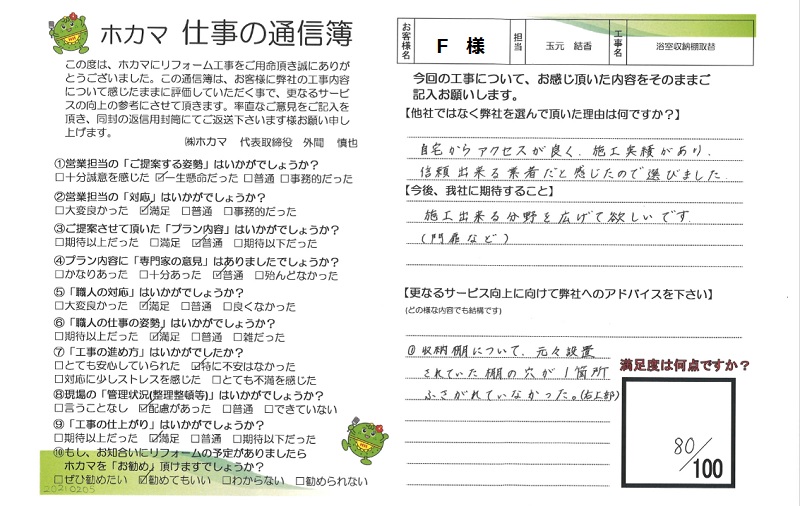 ホカマ 仕事の通信簿
この度は、ホカマにリフォーム工事をご用命頂き誠にありが
とうございました。この通信簿は、お客様に弊社の工事内容
について感じたままに評価していただく事で、更なるサービ
スの向上の参考にさせて頂きます。率直なご意見をご記入を
頂き、同封の返信用封筒にてご返送下さいます様お願い申し
上げます。
㈱ホカマ 代表取締役 外間 慎也
①営業担当の「ご提案する姿勢」はいかがでしょうか？
□十分誠意を感じた ☑一生懸命だった □普通 □事務的だった
②営業担当の「対応」はいかがでしょうか？
□大変良かった ☑満足 □普通 □事務的だった
③ご提案させて頂いた「プラン内容」はいかがでしょうか？
□期待以上だった □満足 ☑普通 □期待以下だった
④プラン内容に「専門家の意見」はありましたでしょうか？
□かなりあった □十分あった ☑普通 □殆んどなかった
⑤「職人の対応」はいかがでしょうか？
□大変良かった ☑満足 □普通 □良くなかった
⑥「職人の仕事の姿勢」はいかがでしょうか？
□期待以上だった ☑満足 □普通 □雑だった
⑦「工事の進め方」はいかがでしたか？
□とても安心していられた ☑特に不安はなかった
□対応に少しストレスを感じた □とても不満を感じた
⑧現場の「管理状況(整理整頓等)」はいかがでしょうか？
□言うことなし ☑配慮があった □普通 □できていない
⑨「工事の仕上がり」はいかがでしょうか？
□期待以上だった ☑満足 □普通 □期待以下だった
⑩もし、お知合いにリフォームの予定がありましたら
ホカマを「お勧め」頂けますでしょうか？
□ぜひ勧めたい ☑勧めてもいい □わからない □勧められない
20210205
お客様名 F 様 担当 玉元 結香 工事名 浴室収納棚取替
今回の工事について、お感じ頂いた内容をそのままご
記入お願いします。
【他社ではなく弊社を選んで頂いた理由は何ですか？】
自宅からアクセスが良く、施工実績があり、
信頼出来る業者だと感じたので選びました。
【今後、我社に期待すること】
施工出来る分野を広げて欲しいです。
(門扉など)
【更なるサービス向上に向けて弊社へのアドバイスを下さい】
(どの様な内容でも結構です)
◎収納棚について、元々設置
されていた棚の穴が1箇所
ふさがれていなかった。(右上部)
満足度は何点ですか？
80/100